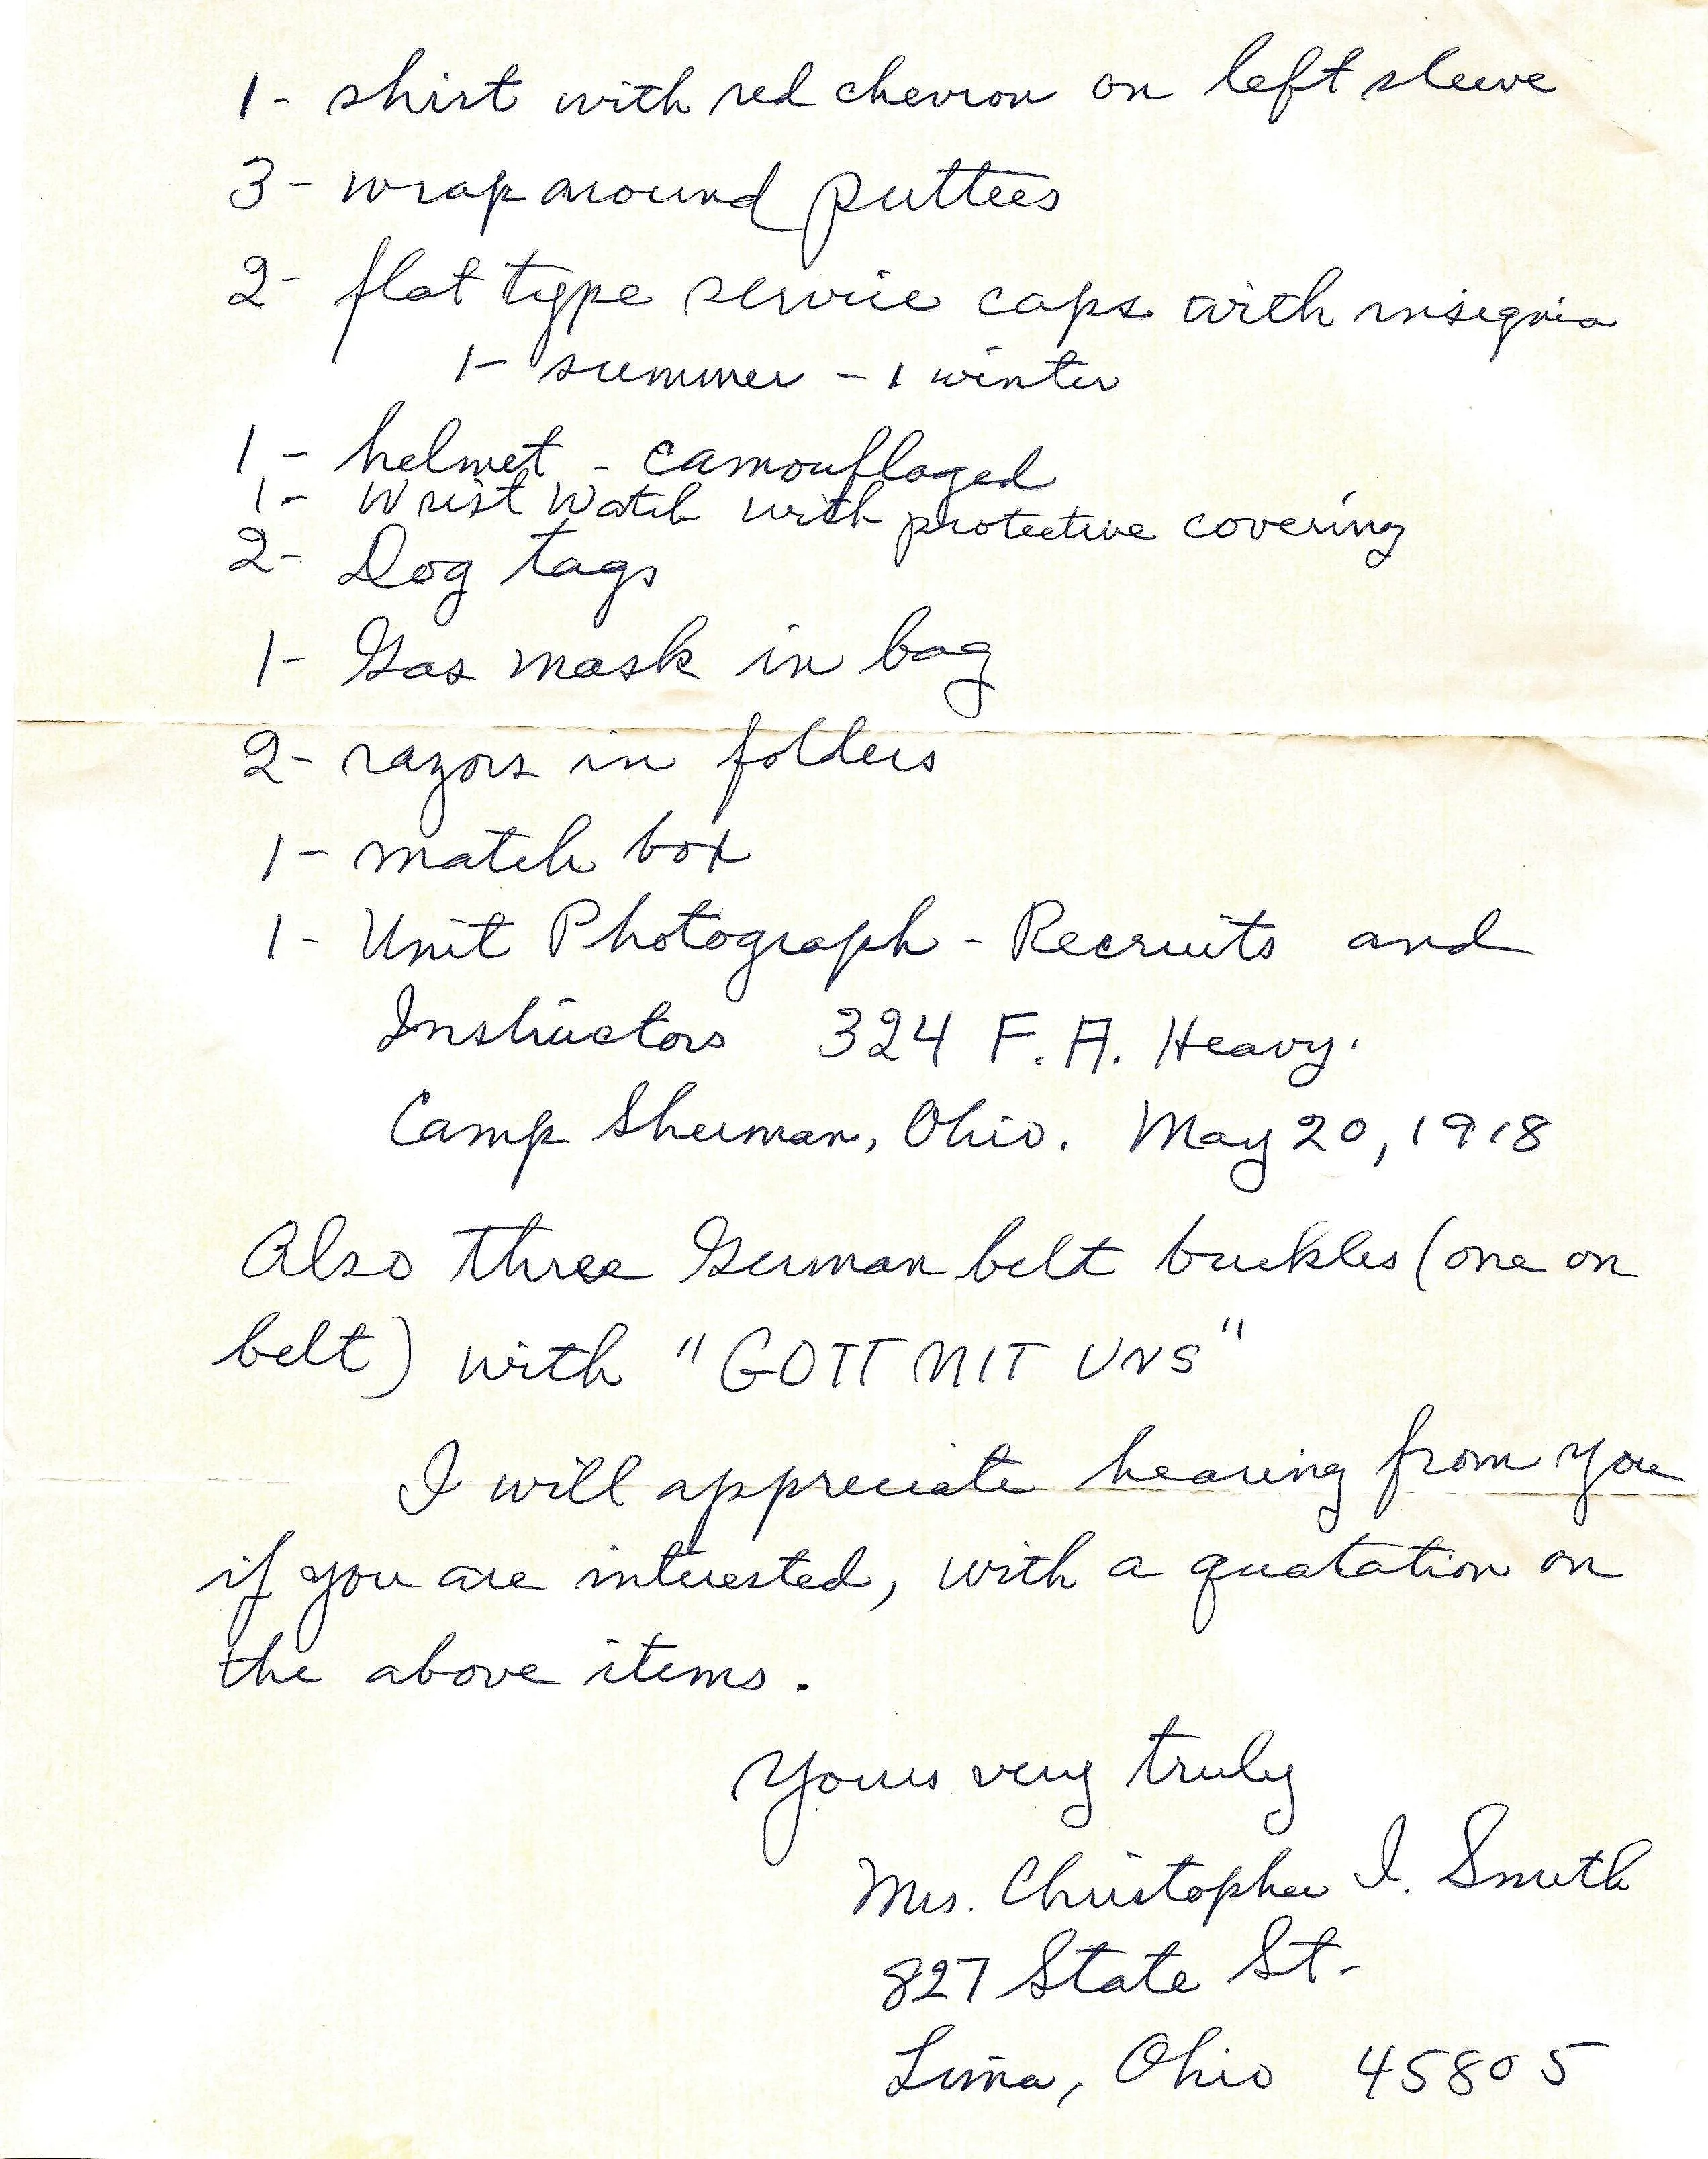 1- shirt with red chevron on left sleeve
3- wrap around puttees
2- flat type service caps with insignia
1- summer - 1 winter
1- helmet - camouflaged
1- Wrist Watch with protective covering
2- Dog tags
1- Gas mask in bag
2- razors in folders
1- match box
1- Unit Photograph - Recruits and
Instructors 324 F. A. Heavy.
Camp Sherman, Ohio. May 20, 1918
Also three German belt buckles (one on
belt) with "GOTT MIT UNS"
I will appreciate hearing from you
if you are interested, with a quotation on
the above items.
Yours very truly
Mrs. Christopher I. Smith
827 State St.
Lima, Ohio 45805